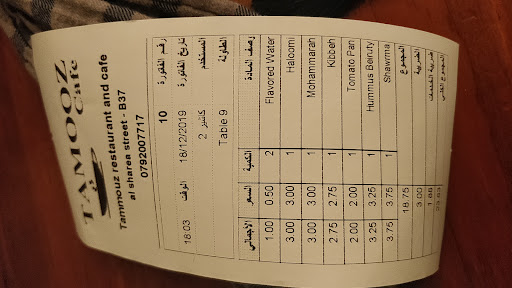 TAMOOZ
Cafe
Tammouz restaurant and cafe
al sharea street - B37
0792007717
رقم الفاتورة 10
تاريخ الفاتورة 18/12/2019 الوقت 18:03
المستخدم كاشير 2
الطاولة Table 9
وصف المادة الكمية السعر الاجمالي
Flavored Water 2 0.50 1.00
Halloomi 1 3.00 3.00
Mohammarah 1 3.00 3.00
Kibbeh 1 2.75 2.75
Tomato Pan 1 2.00 2.00
Hummus Beiruty 1 3.25 3.25
Shawrma 1 3.75 3.75
المجموع 18.75
الضريبة 3.00
ضريبة الخدمات 1.88
المجموع الكلي 23.63